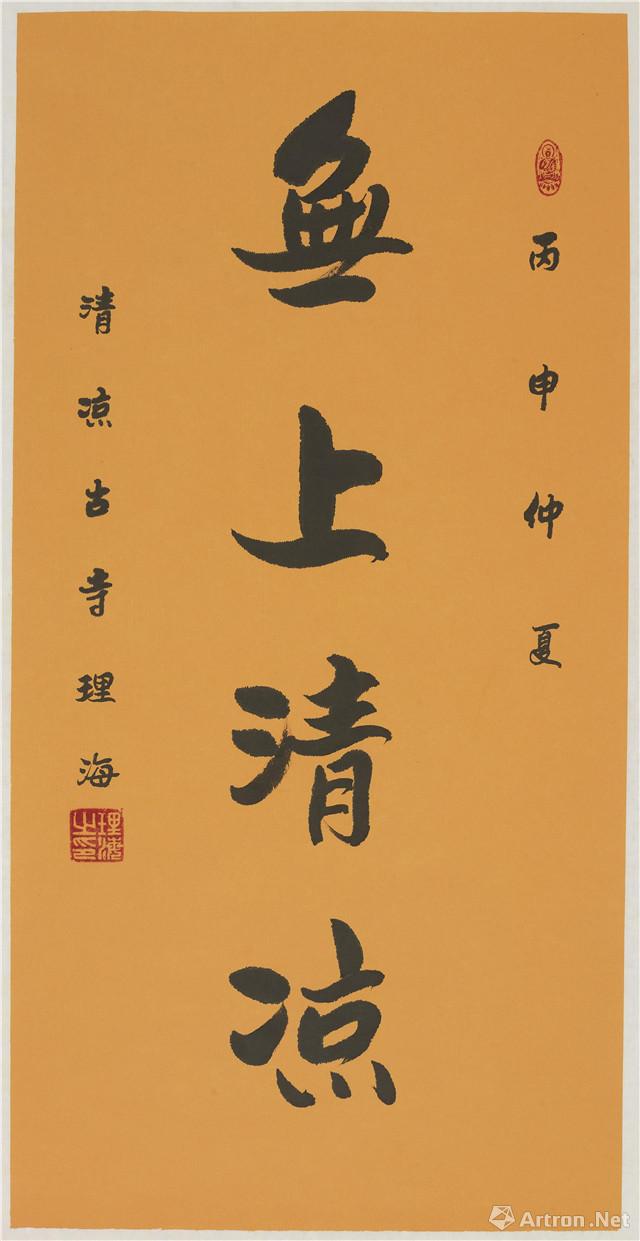 丙申仲夏
無上清凉
清凉古寺理海
理海之印
Artron.Net